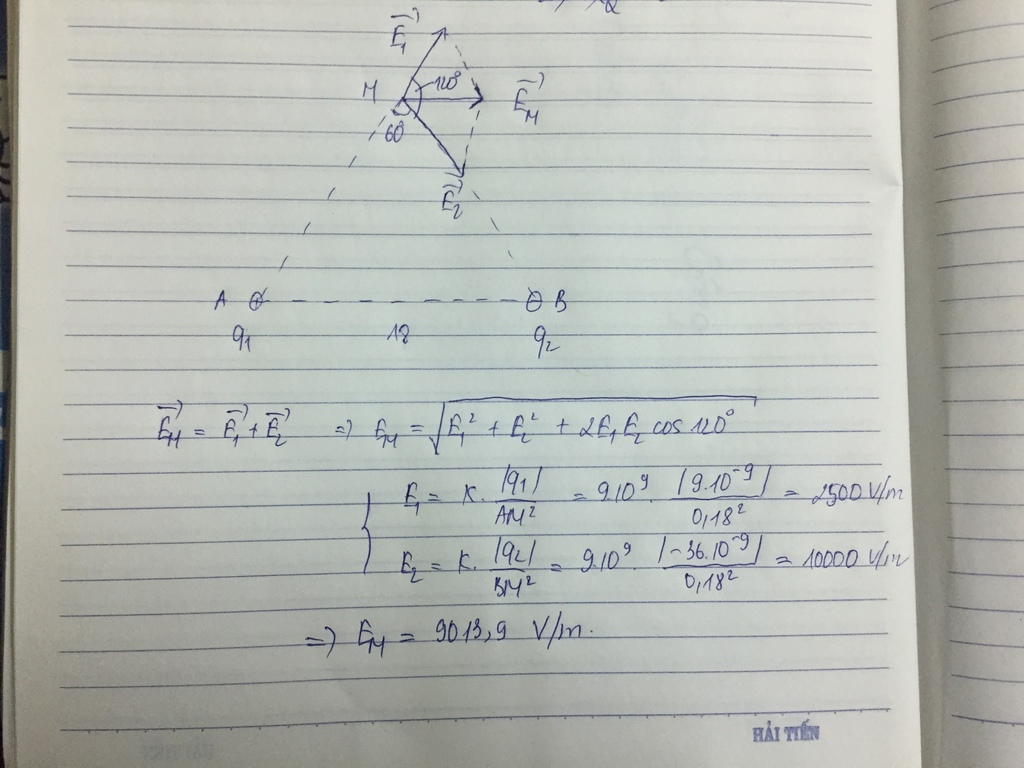 E₁→
M 120° E_M→
60°
E₂→
A B
q₁ 12 q₂
E_M→ = E₁→ + E₂→ => E_M = √(E₁² + E₂² + 2E₁E₂ cos 120°)
{ E₁ = k. |q₁|/AM² = 9.10⁹. |9.10⁻⁹|/0,18² = 2500 V/m
E₂ = k. |q₂|/BM² = 9.10⁹. |-36.10⁻⁹|/0,18² = 10000 V/m
=> E_M = 9013,9 V/m.
HẢI TIẾN